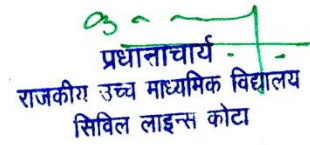 प्रधानाचार्य
राजकीय उच्च माध्यमिक विद्यालय
सिविल लाइन्स कोटा